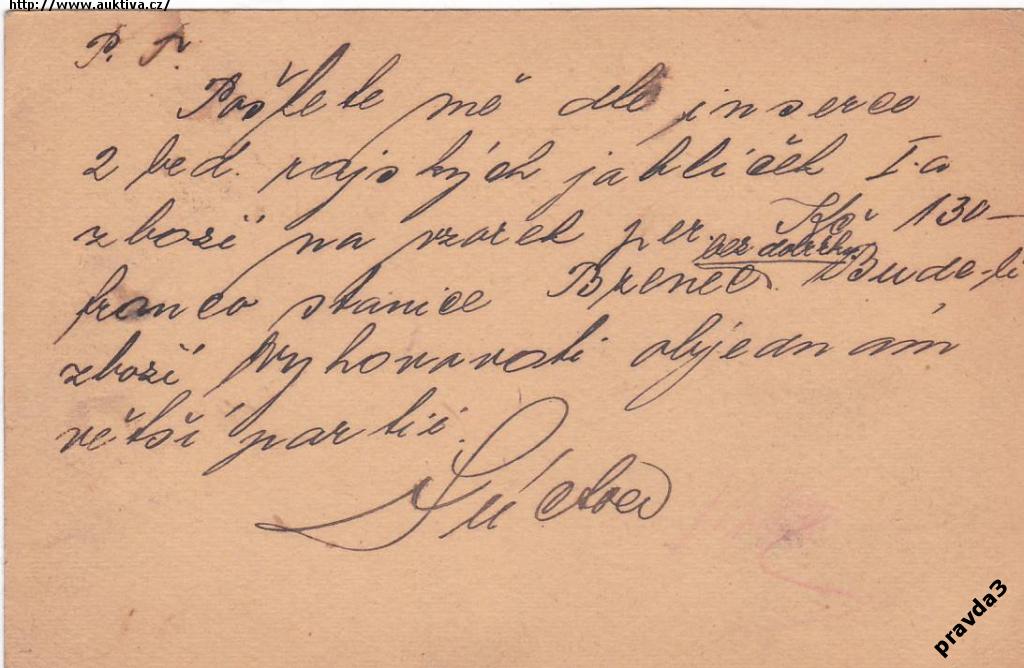 http://www.auktiva.cz/
P. T.
Pošlete mě dle inserce
2 bed. rajských jabliček I.a
zboží na vzorek per Kč 130–
bez dobírky
franco stanice Brenec. Bude-li
zboží vyhovovati objednám
větší partii.
S úctou
pravda3